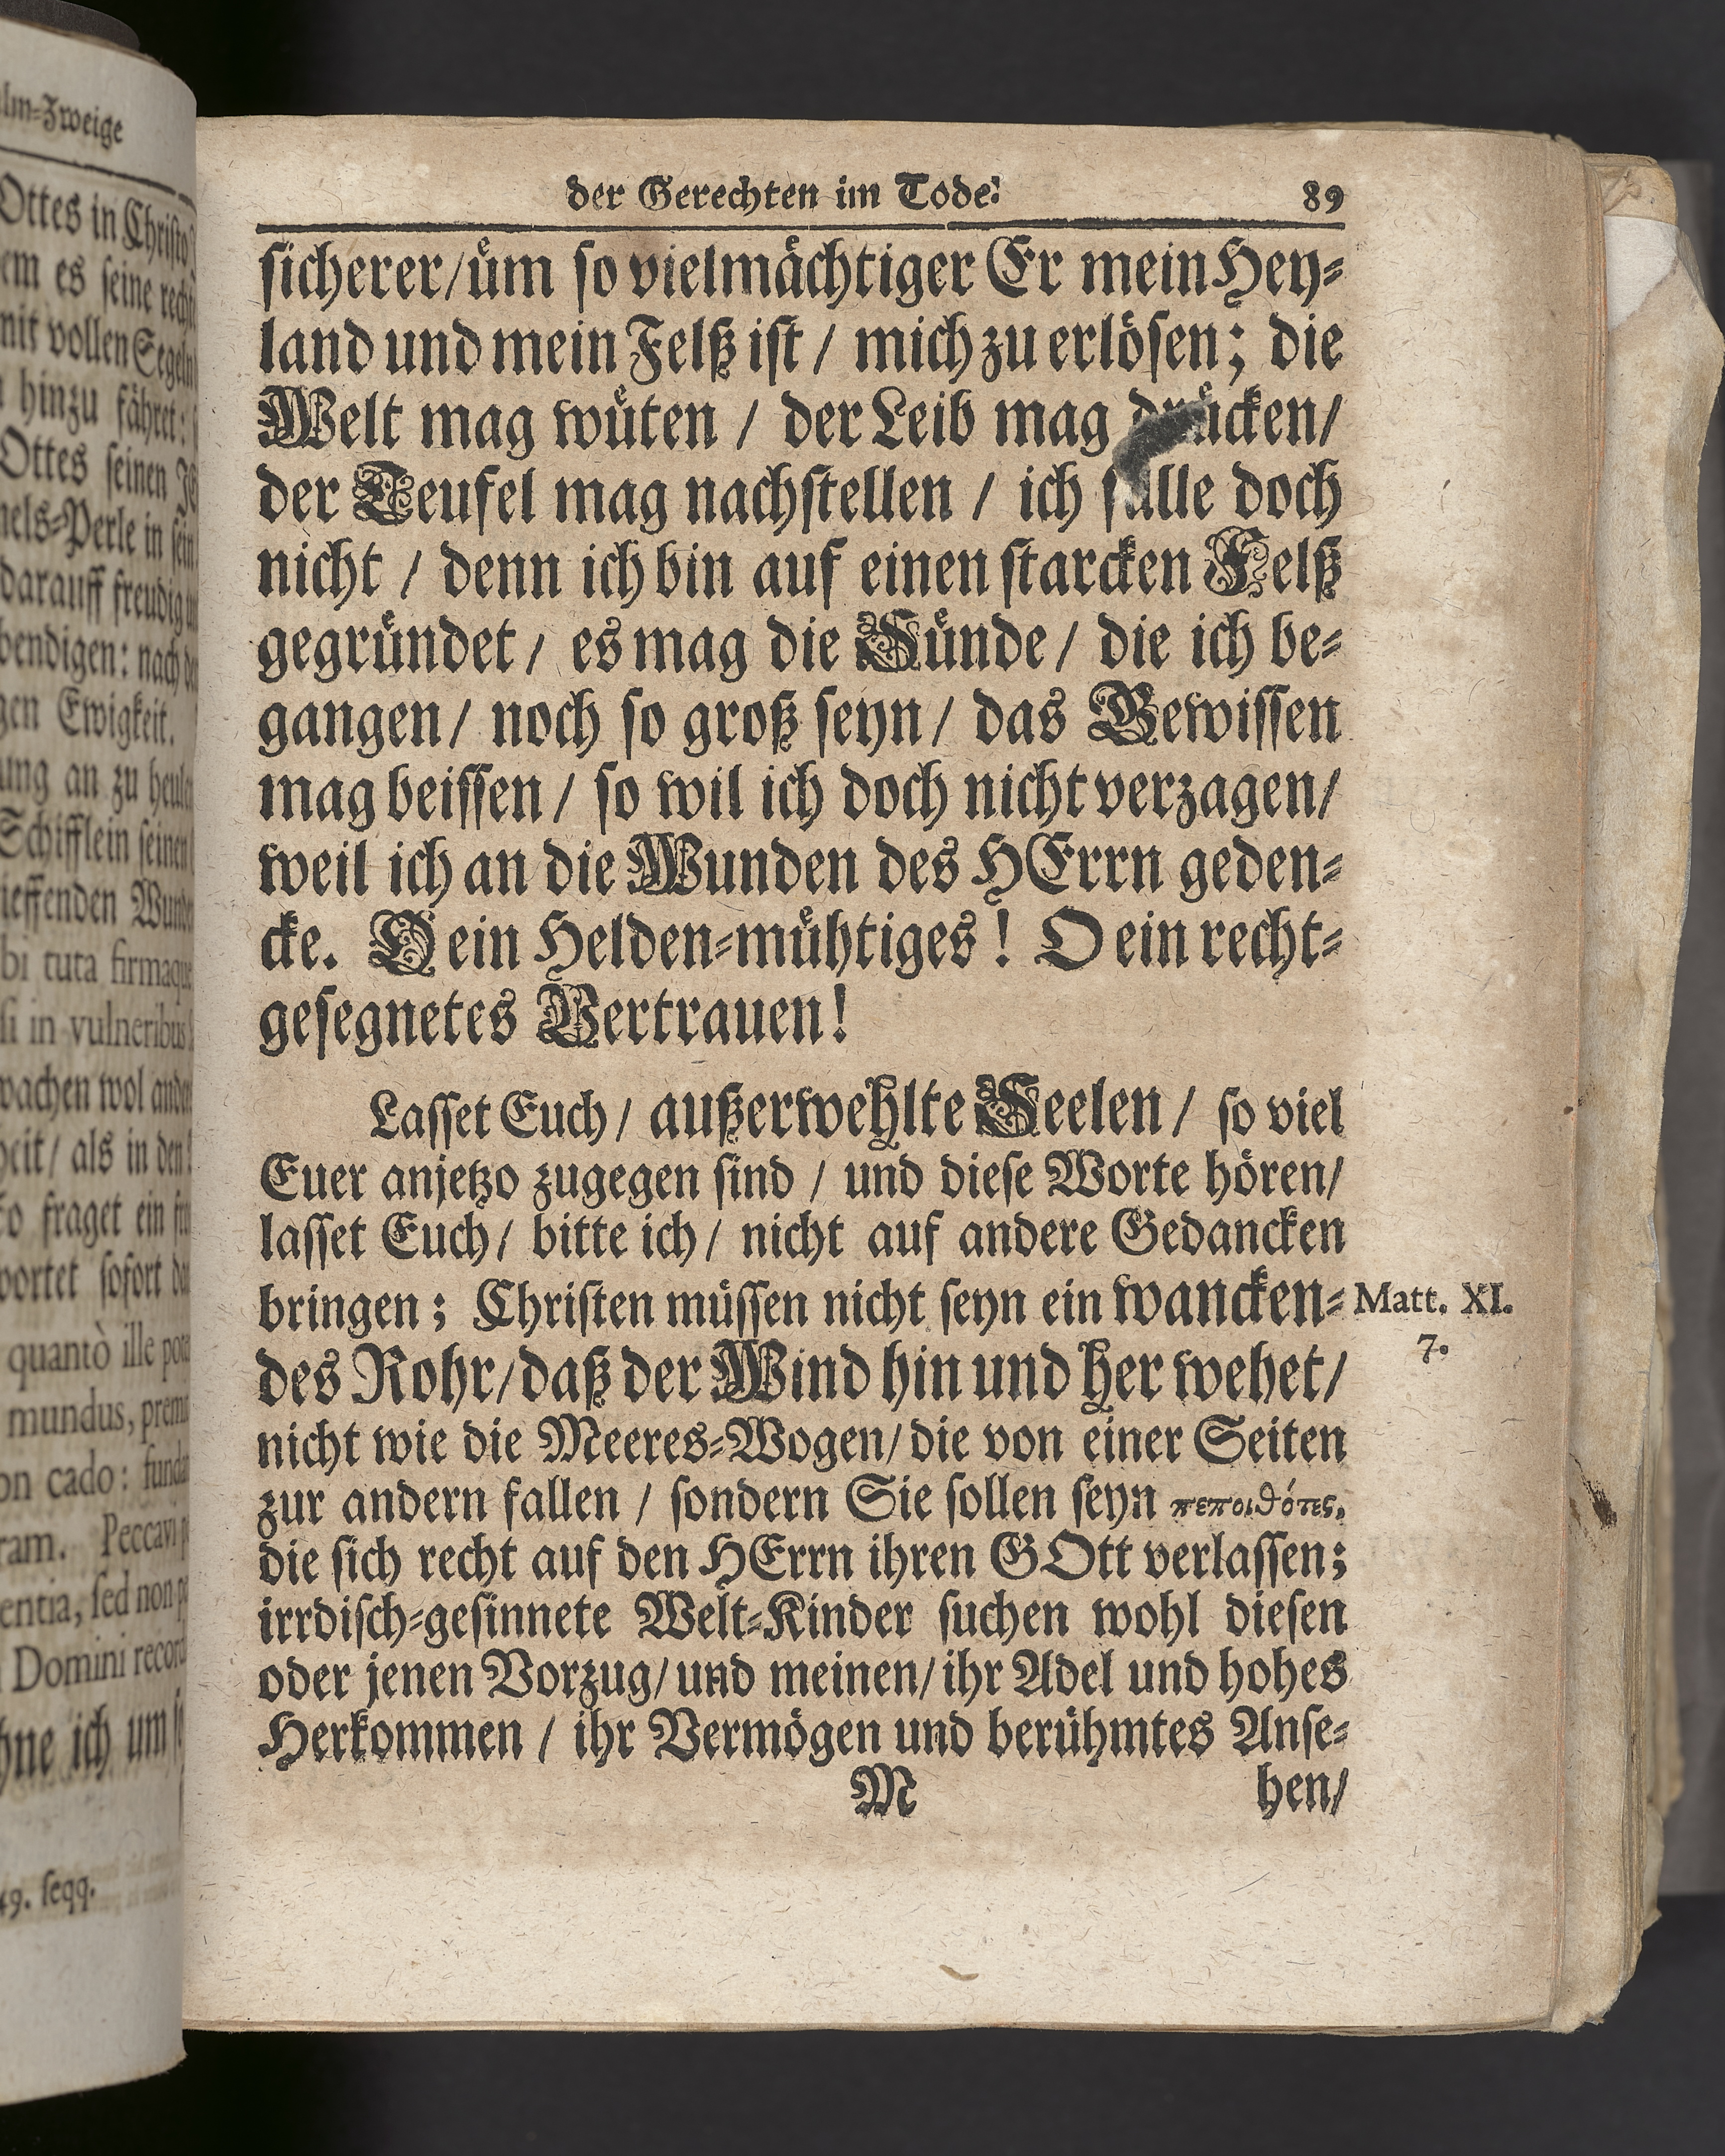 lm-Zweige
Ottes in Christo
em es seine
mit vollen Segeln
hinzu fähret:
Ottes seinen
nels-Perle in sein
darauff freudig
bendigen: nach
gen Ewigkeit.
ung an zu heule
Schifflein seinen
ieffenden Wunde
bi tuta firmaque
si in vulneribus
wachen wol ander
heit / als in den
o fraget ein
wortet sofort
quantò ille
mundus,
on cado:
ram. Peccavi
entia, sed non
Domini
hne ich um
49. seqq.
der Gerechten im Tode. 89
sicherer/ üm so vielmächtiger Er mein Hey-
land und mein Felß ist / mich zu erlösen; die
Welt mag wüten / der Leib mag drücken/
der Teufel mag nachstellen / ich falle doch
nicht / denn ich bin auf einen starcken Felß
gegründet / es mag die Sünde / die ich be-
gangen / noch so groß seyn / das Gewissen
mag beissen / so wil ich doch nicht verzagen/
weil ich an die Wunden des HErrn geden-
cke. O ein Helden-mühtiges! O ein recht-
gesegnetes Vertrauen!
Lasset Euch / außerwehlte Seelen / so viel
Euer anjetzo zugegen sind / und diese Worte hören/
lasset Euch / bitte ich / nicht auf andere Gedancken
bringen; Christen müssen nicht seyn ein wancken- Matt. XI.
7.
des Rohr/ daß der Wind hin und her wehet/
nicht wie die Meeres-Wogen/ die von einer Seiten
zur andern fallen / sondern Sie sollen seyn πεποιθότες,
die sich recht auf den HErrn ihren GOtt verlassen;
irrdisch-gesinnete Welt-Kinder suchen wohl diesen
oder jenen Vorzug/ und meinen/ ihr Adel und hohes
Herkommen / ihr Vermögen und berühmtes Anse-
M hen/